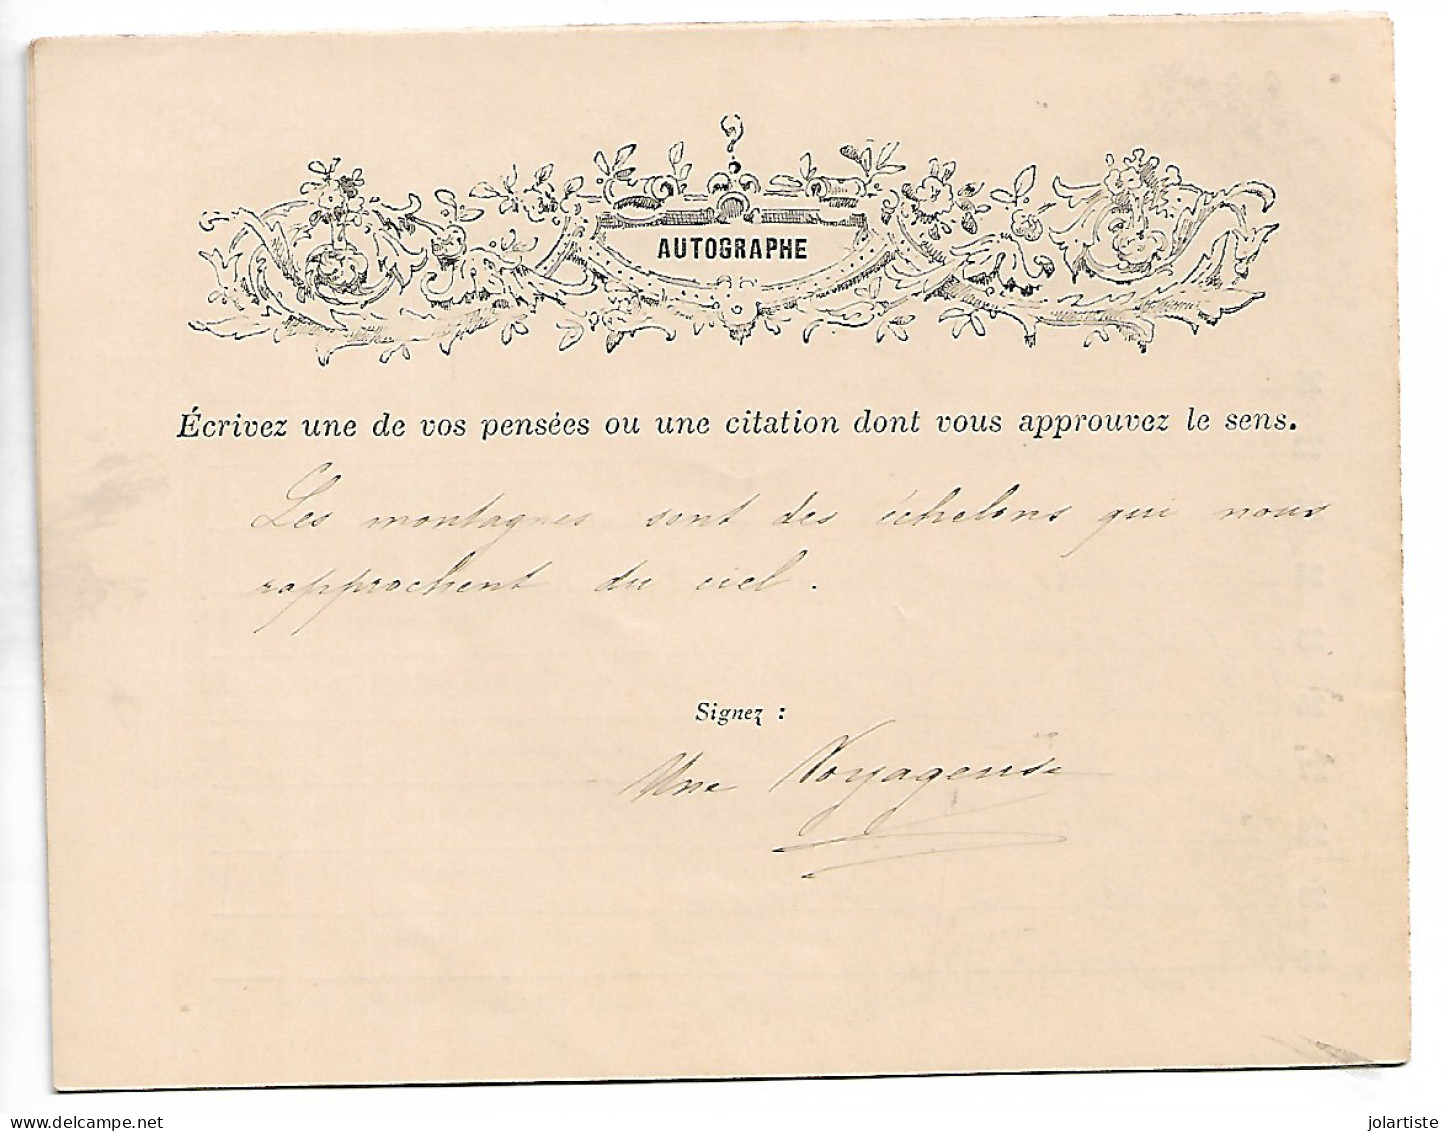 AUTOGRAPHE
Écrivez une de vos pensées ou une citation dont vous approuvez le sens.
Les montagnes sont des échelons qui nous
rapprochent du ciel.
Signez :
Une Voyageuse
delcampe.net
jolartiste